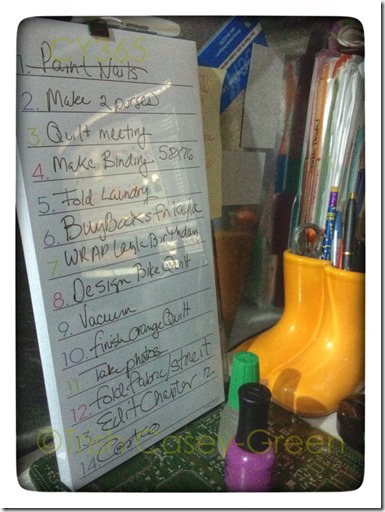 CY365
1. Paint Nails
2. Make 2 purses
3. Quilt meeting
4. Make Binding 58x76
5. Fold Laundry
6. Buy Books fn layla
7. WRAP Birthday
8. Design Bike Quilt
9. Vacuum
10. finish Orange Quilt
11 Take photos
12. fold fabric/store it
13. Edit Chapter 2
14. Costco
©Trish Casey-Green